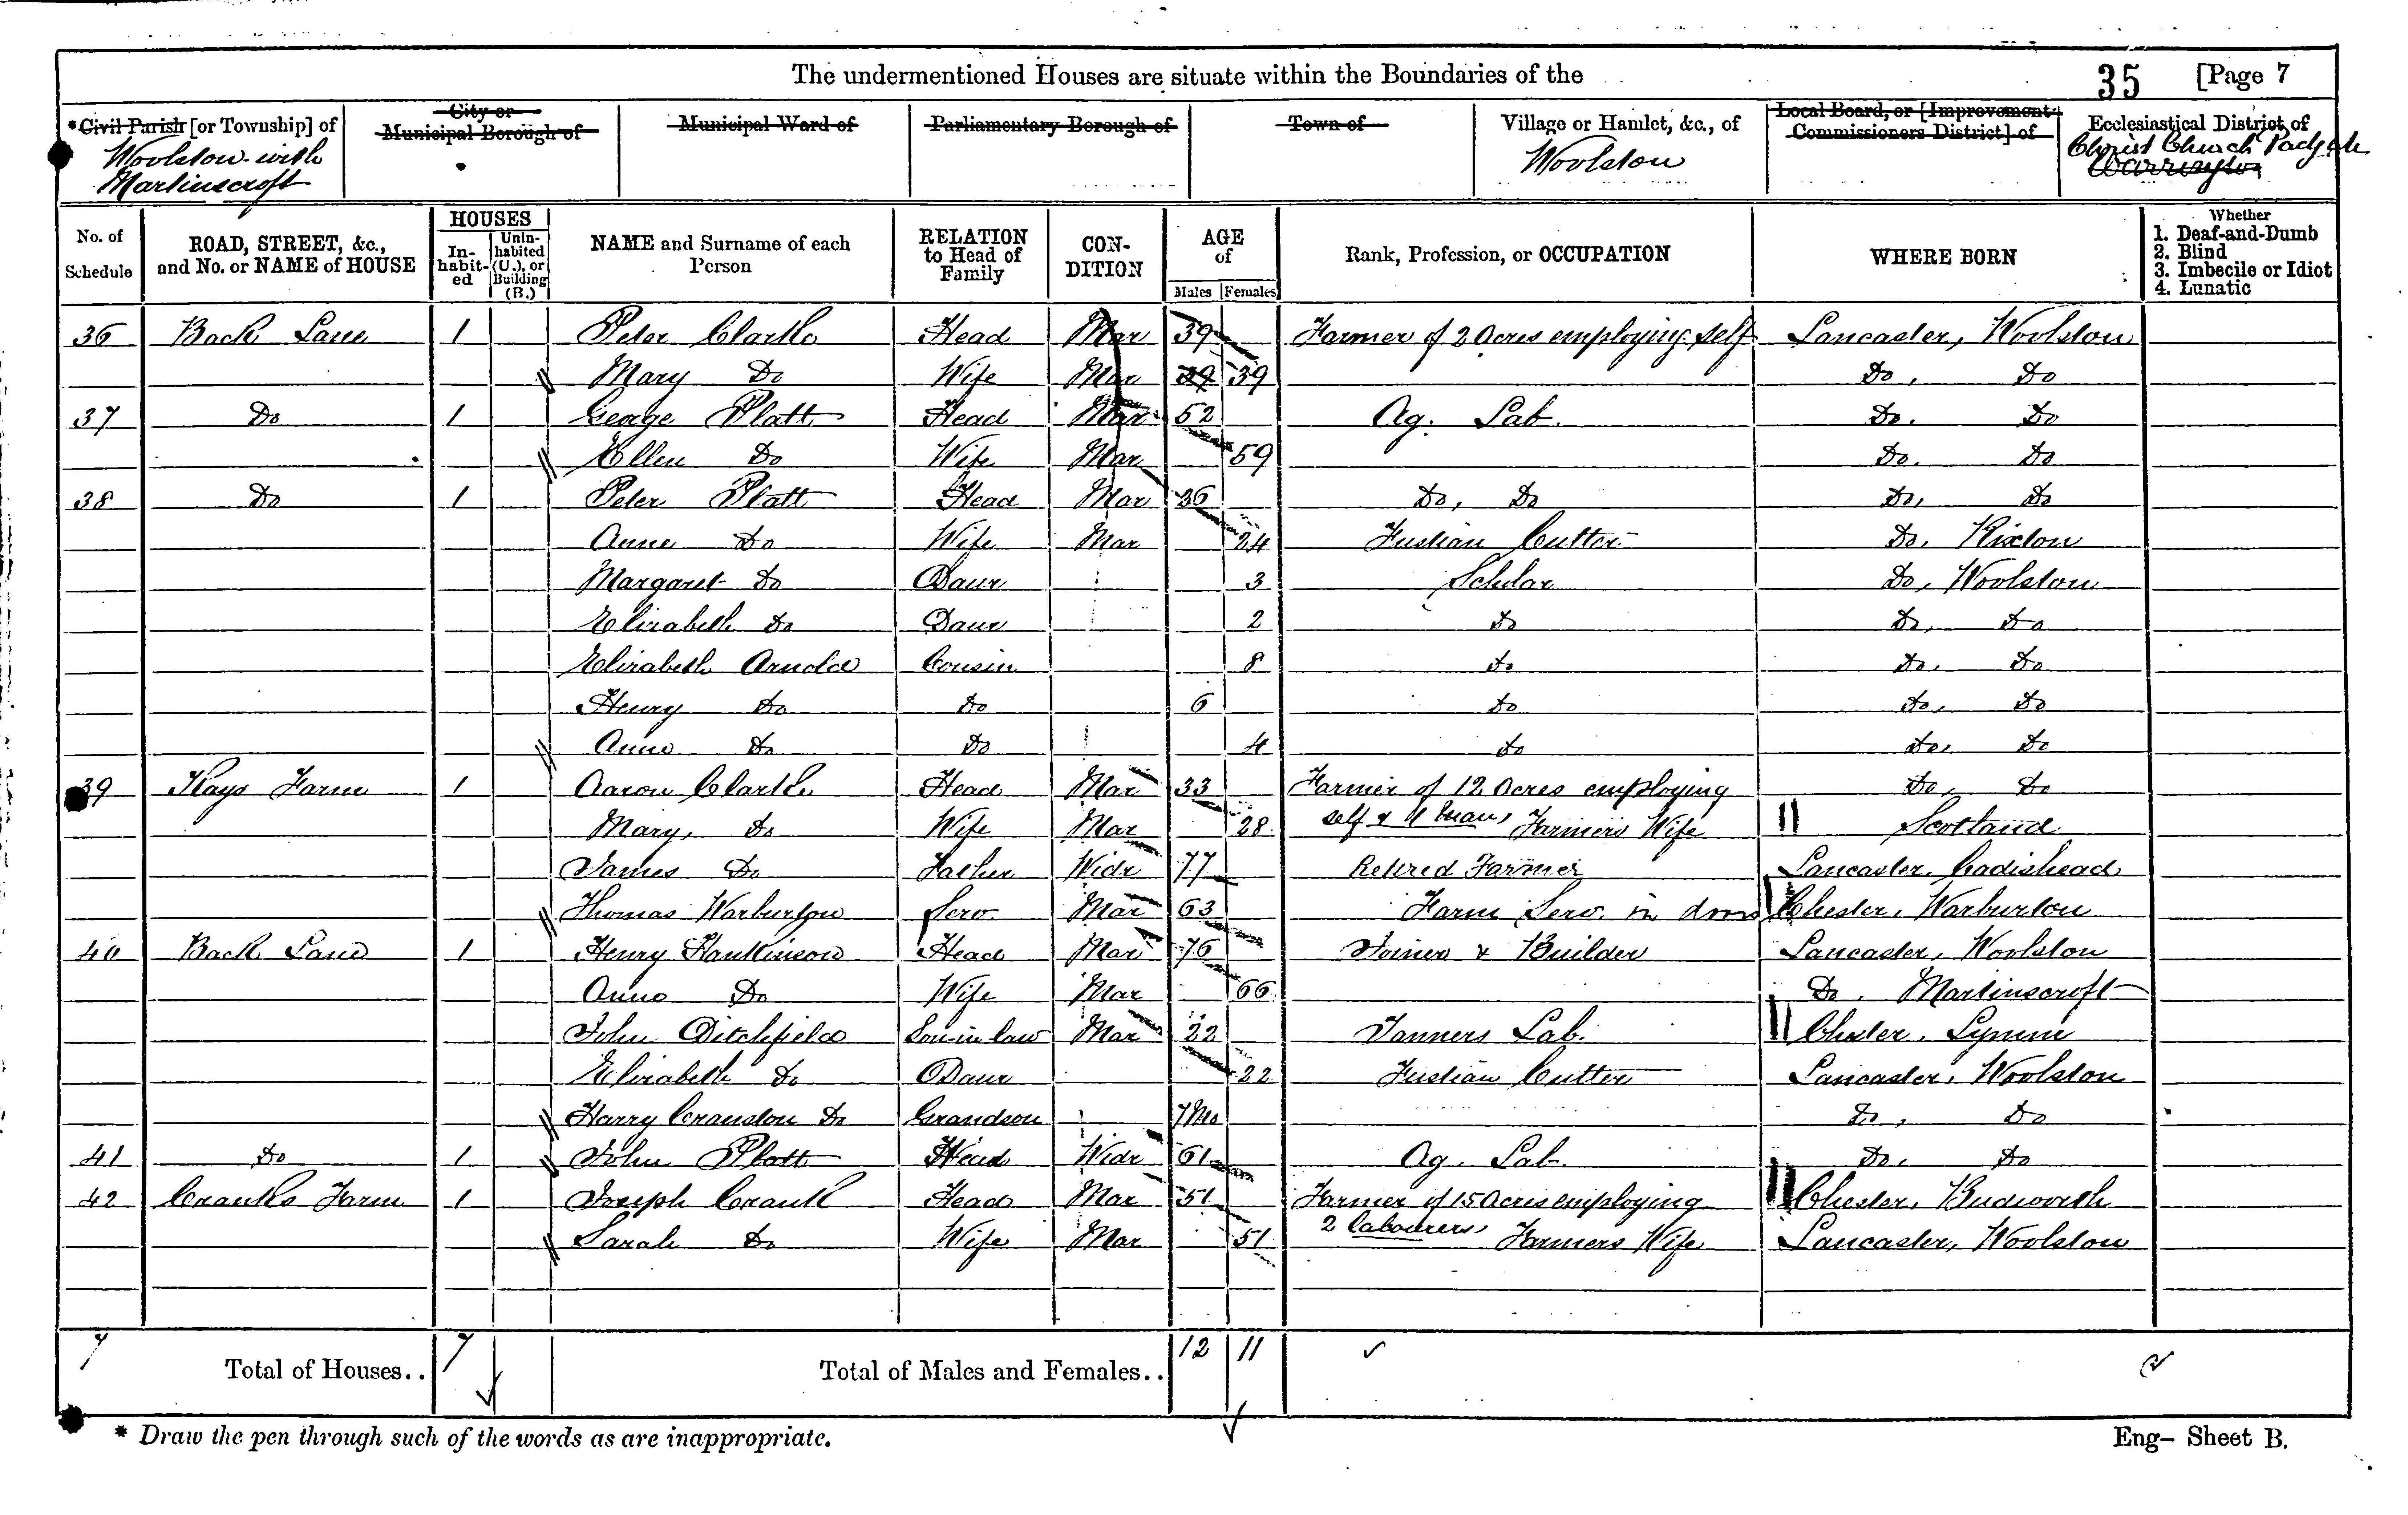 The undermentioned Houses are situate within the Boundaries of the 35 [Page 7
*Civil Parish [or Township] of
Woolston with
Martinscroft
City or
Municipal Borough of
Municipal Ward of
Parliamentary Borough of
Town of
Village or Hamlet, &c., of
Woolston
Local Board, or [Improvement
Commissioners District] of
Ecclesiastical District of
Christ Church Padgate
Warrington
No. of Schedule
ROAD, STREET, &c., and No. or NAME of HOUSE
HOUSES
In-habit-ed
Unin-habited (U.), or Building (B.)
NAME and Surname of each Person
RELATION to Head of Family
CON-DITION
AGE of
Males Females
Rank, Profession, or OCCUPATION
WHERE BORN
Whether
1. Deaf-and-Dumb
2. Blind
3. Imbecile or Idiot
4. Lunatic
36 Back Lane 1 Peter Clarke Head Mar 39 Farmer of 2 Acres employing self Lancaster, Woolston
Mary Do Wife Mar 39 39 Do, Do
37 Do 1 George Platt Head Mar 52 Ag. Lab. Do. Do
Ellen Do Wife Mar 59 Do. Do
38 Do 1 Peter Platt Head Mar 36 Do, Do Do, Do
Anne Do Wife Mar 24 Fustian Cutter Do, Rixton
Margaret Do Daur 3 Scholar Do, Woolston
Elizabeth Do Daur 2 Do Do, Do
Elizabeth Arnold Cousin 8 Do Do, Do
Henry Do Do 6 Do Do, Do
Anne Do Do 4 Do Do, Do
39 Kays Farm 1 Aaron Clarke Head Mar 33 Farmer of 12 Acres employing Do, Do
Mary, Do Wife Mar 28 self & 1 man, Farmers Wife Scotland
James Do Father Widr 77 Retired Farmer Lancaster, Cadishead
Thomas Warburton Serv. Mar 63 Farm Serv. in doors Chester, Warburton
40 Back Lane 1 Henry Hankinson Head Mar 76 Joiner & Builder Lancaster, Woolston
Anne Do Wife Mar 66 Do, Martinscroft
John Ditchfield Son-in-law Mar 22 Tanners Lab. Chester, Lymm
Elizabeth Do Daur 22 Fustian Cutter Lancaster, Woolston
Harry Cranston Do Grandson 7Mo Do, Do
41 Do 1 John Platt Head Widr 61 Ag. Lab. Do, Do
42 Cranks Farm 1 Joseph Crank Head Mar 51 Farmer of 15 Acres employing Chester, Budworth
Sarah Do Wife Mar 51 2 labourers, Farmers Wife Lancaster, Woolston
7 Total of Houses.. 7 Total of Males and Females.. 12 11
* Draw the pen through such of the words as are inappropriate.
Eng- Sheet B.